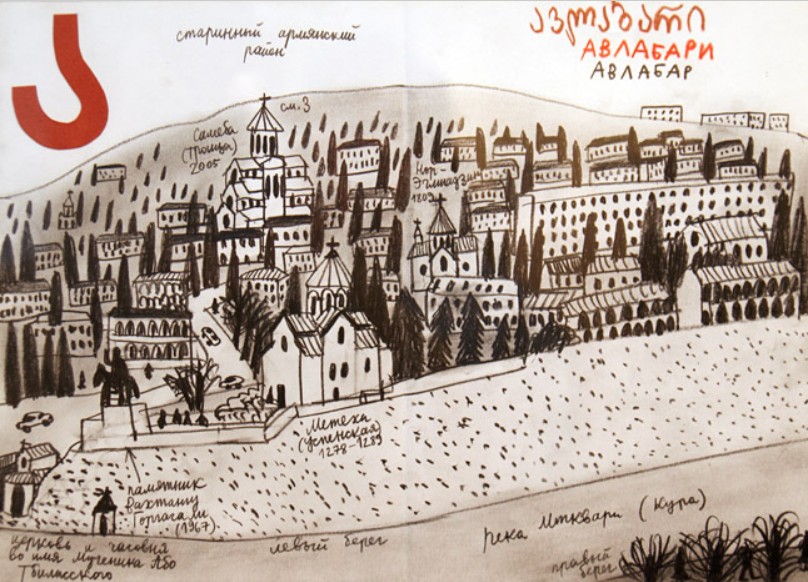 ა
старинный армянский
район
ავლაბარი
АВЛАБАРИ
АВЛАБАР
см. 3
Самеба
(Троица)
2005
Нор-
Эчмиадзин
Метехи
(Успенская)
1278-1289
памятник
Вахтангу
Горгасали
(1967)
церковь и часовня
во имя мученика Або
Тбилисского
левый берег
река Мтквари (Кура)
правый
берег